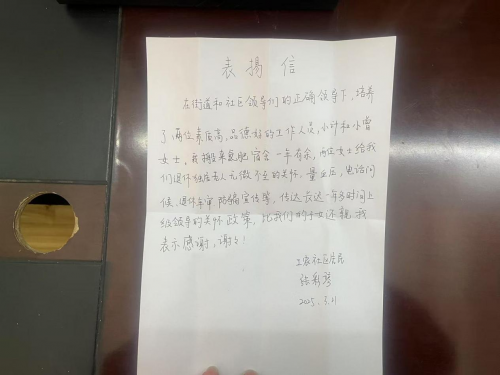 表揚信
在街道和社区领导们的正确领导下，培养
了两位素质高，品德好的工作人员，小叶和小曾
女士，我搬来氮肥宿舍一年有余，两位女士给我
们退休独居老人无微不至的关怀。量血压，电话问
候，退休年审防骗宣传等，传达表达一有时间上
级领导的关怀政策，比我们的子女还亲，我
表示感谢，谢谢！
社区居民
2025.3.11